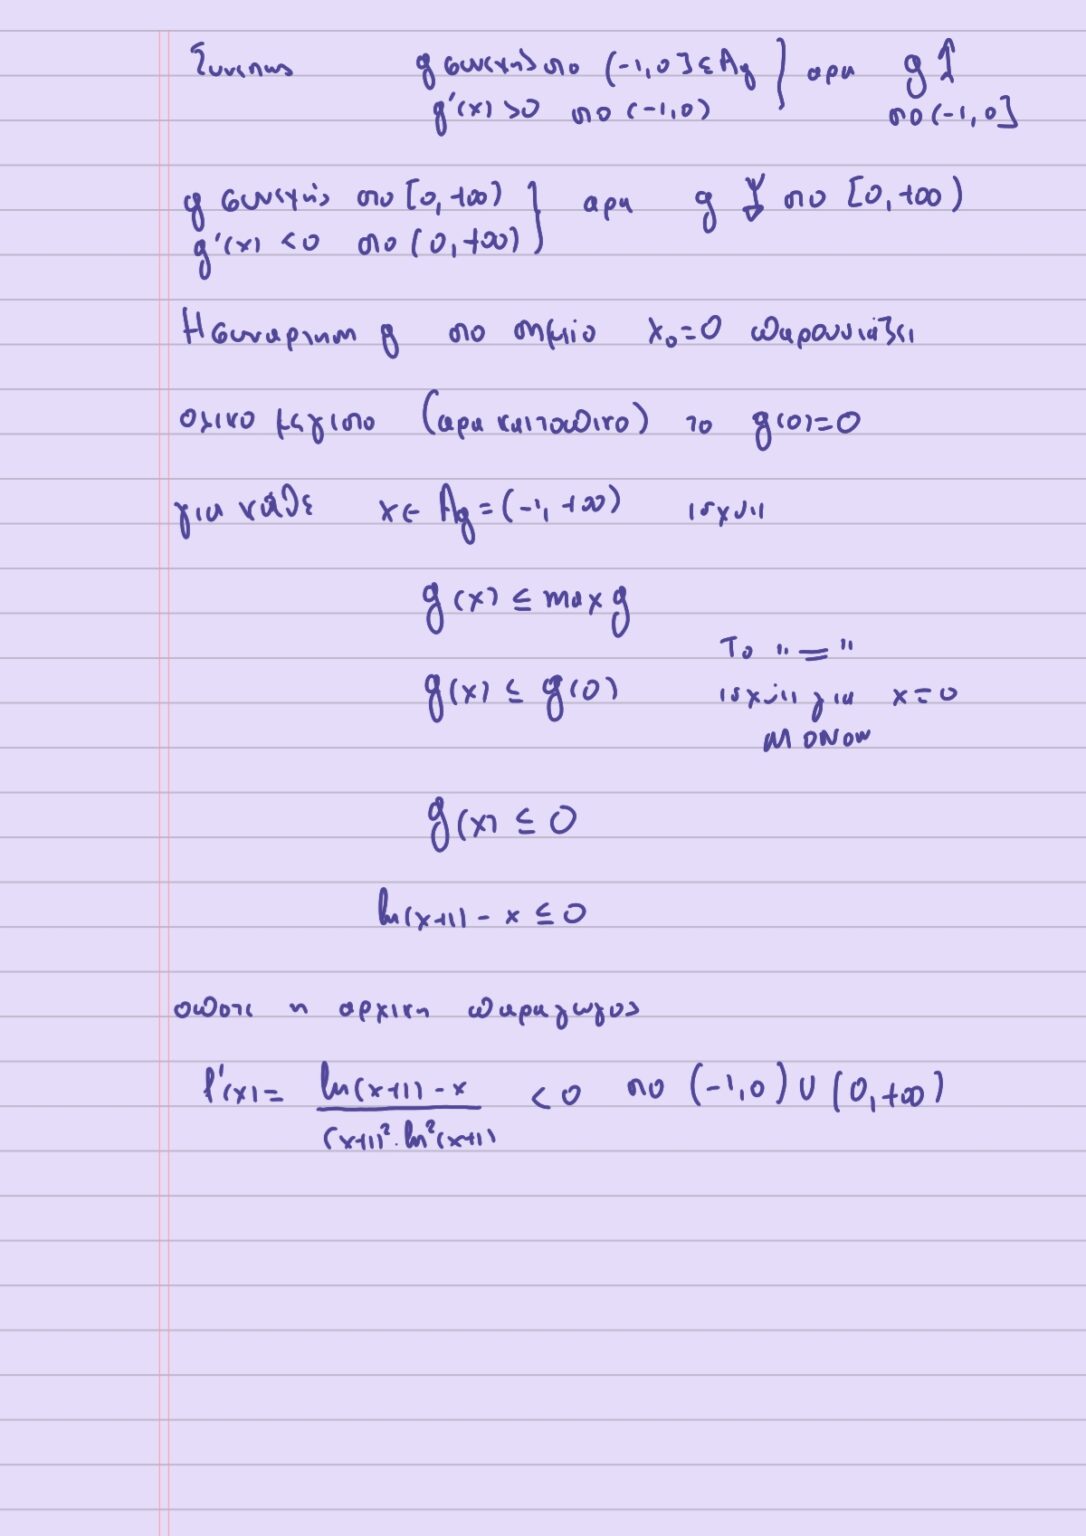 Συνεπως g συνεχης στο (-1,0] ⊆ Ag } αρα g ↑
g'(x) >0 στο (-1,0) στο (-1,0]
g συνεχής στο [0,+∞) } αρα g ↓ στο [0,+∞)
g'(x) <0 στο (0,+∞)
Η συναρτηση g στο σημείο x₀=0 παρουσιάζει
ολικο μεγιστο (αρα και τοπικο) το g(0)=0
για κάθε x∈ Ag=(-1,+∞) ισχυει
g(x) ≤ max g
Το "="
g(x) ≤ g(0) ισχύει για x=0
ΜΟΝΟΝ
g(x) ≤ 0
ln(x+1) - x ≤ 0
οποτε η αρχικη παραγωγος
f'(x)= ln(x+1) - x / (x+1)².ln²(x+1) <0 στο (-1,0) ∪ (0,+∞)